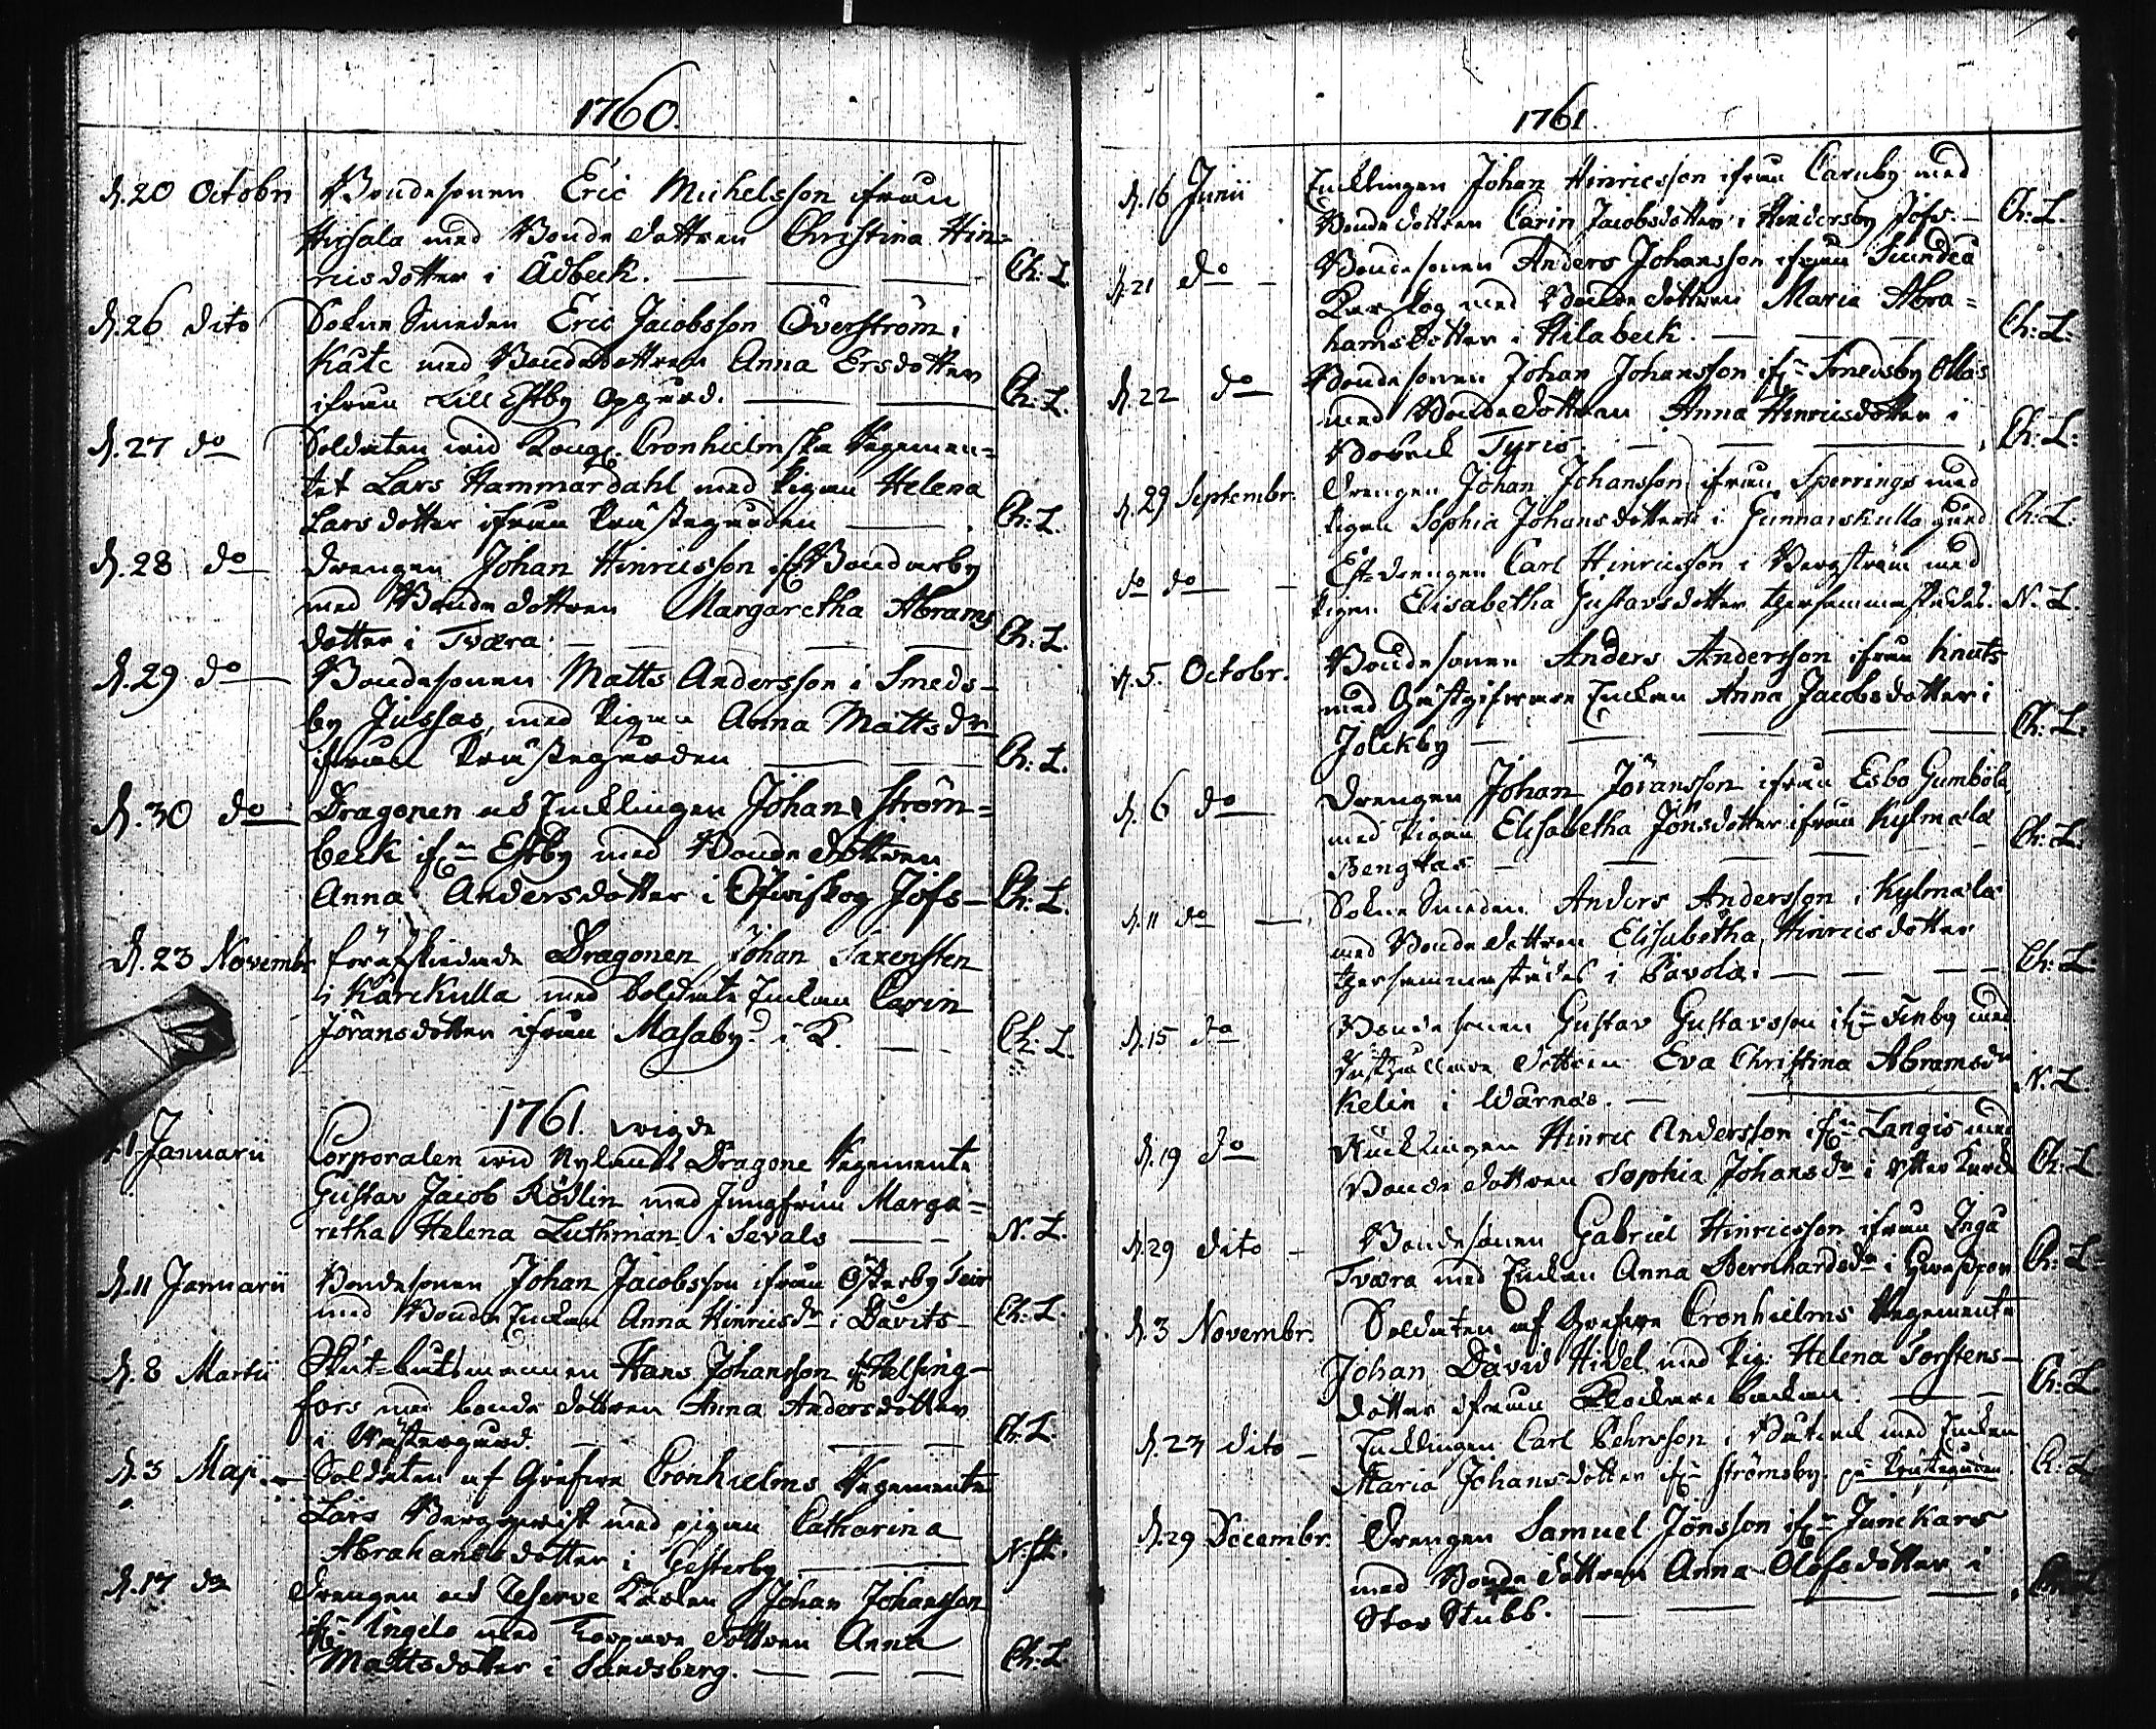 1760.
d. 20 Octobr Bondesonen Eric Michelsson ifrån
Hirsala med Bonde dottren Christina Hin=
ricsdotter i Ådbeck. Ch: L.
d. 26 dito Sokne Smeden Eric Jacobsson Öfverström i
Kate med Bondedottren Anna Ersdotter
ifrån Lill Estby Opgård. Ch: L.
d. 27 do Soldaten wid Cronhielmska Regemen=
tet Lars Hammardahl med Pigan Helena
Larsdotter ifrån Prästegården Ch: L.
d. 28 do Drengen Johan Hinricsson if: Bondarby
med Bonde dottren Margaretha Abrams
dotter i Tværa. Ch: L.
d. 29 do Bondesonen Matts Andersson i Smeds-
by Jussas, med Pigan Anna Mattsdr
ifrån Prästegården Ch: L.
d. 30 do Dragonen och Enklingen Johan Ström=
beck if:n Estby med Bonde dottren
Anna Andersdotter i Öfwiskog Jofs- Ch: L.
d. 23 Novembr förafskedade Dragonen Johan Saxensten
i Karckulla med Soldate Enkan Carin
Jöransdotter ifrån Masaby i K. Ch: L.
1761. wigde
Januarii Corporalen wid Nylands Dragone Regemente
Gustav Jacob Rödlin med Jungfrun Marga=
retha Helena Luthman i Sevals N. L.
d. 11 Januarii Bondesonen Johan Jacobsson ifrån Österby
med Bonde Enkan Anna Hinricsdr i Davits- Ch: L.
d. 8 Martii Båtsmannen Hans Johansson if: Helsing-
fors med bonde dottren Anna Andersdotter
i Wästergård. Ch: L.
d. 3 Maji Soldaten af Grefwe Cronhielms Regemente
Lars Bergqwist med pigan Catharina
Abrahamsdotter i Gesterby
d. 17 do Drengen och Reserve Karlen Johan Johansson
if:n Ingels med Torpare dottren Anna
Mattsdotter i Sandsberg. Ch: L.
1761.
d. 16 Junii Encklingen Johan Hinricsson ifrån Caruby med
Bonde dottren Carin Jacobsdotter i Hindersby Jofs. Ch: L.
d. 21 do Bondesonen Anders Johansson ifrån Sundeå
med Bonde dottren Maria Abra=
hamsdotter i Hilabeck. Ch: L:
d. 22 do Bondesonen Johan Johansson if:n Smedsby Ollas
med Bondedottren Anna Hinricsdotter i
Bobeck Tyris. Ch: L:
d. 29 Septembr. Drengen Johan Johansson ifrån Sperrings med
Pigan Sophia Johansdotter i Gunnarskulla gård Ch: L:
do do Drengen Carl Hinricsson i Bergström med
Pigan Elisabetha Gustavsdotter thersammastädes. N. L.
d. 5. Octobr. Bondesonen Anders Andersson ifrån Knuts
med Gästgifware Enkan Anna Jacobsdotter i
Jolckby Ch: L:
d. 6 do Drengen Johan Jöransson ifrån Esbo Gumböle
med Pigan Elisabetha Jönsdotter ifrån Kylmälä
Bengtas Ch: L:
d. 11 do Sokne Smeden Anders Andersson i Kylmälä
med Bonde dottren Elisabetha Hinricsdotter
thersammastädes i Pavola. Ch: L.
d. 15 do Bonde sonen Gustav Gustavsson if:n Finby med
dottren Eva Christina Abramsdr
Kelin i Warnäs. N. L.
d. 19 do Encklingen Hinric Andersson if:n Langis med
Bonde dottren Sophia Johansdr i Ch: L
d. 29 dito Bondesonen Gabriel Hinricsson ifrån Ingå
Tværa med Enkan Anna Bernhardsdr i Ch: L
d. 3 Novembr. Soldaten af Grefwe Cronhielms Regemente
Johan David Hidel med Pig: Helena Torstens-
dotter ifrån Klockare backan. Ch: L.
d. 23 dito Encklingen Carl Behrsson i med Enkan
Maria Johansdotter if:n Strömsby. på Prästegården Ch: L
d. 29 Decembr. Drengen Samuel Jönsson if:n Junckars
med Bonde dottren Anna Olofsdotter i
Stor Stubb.